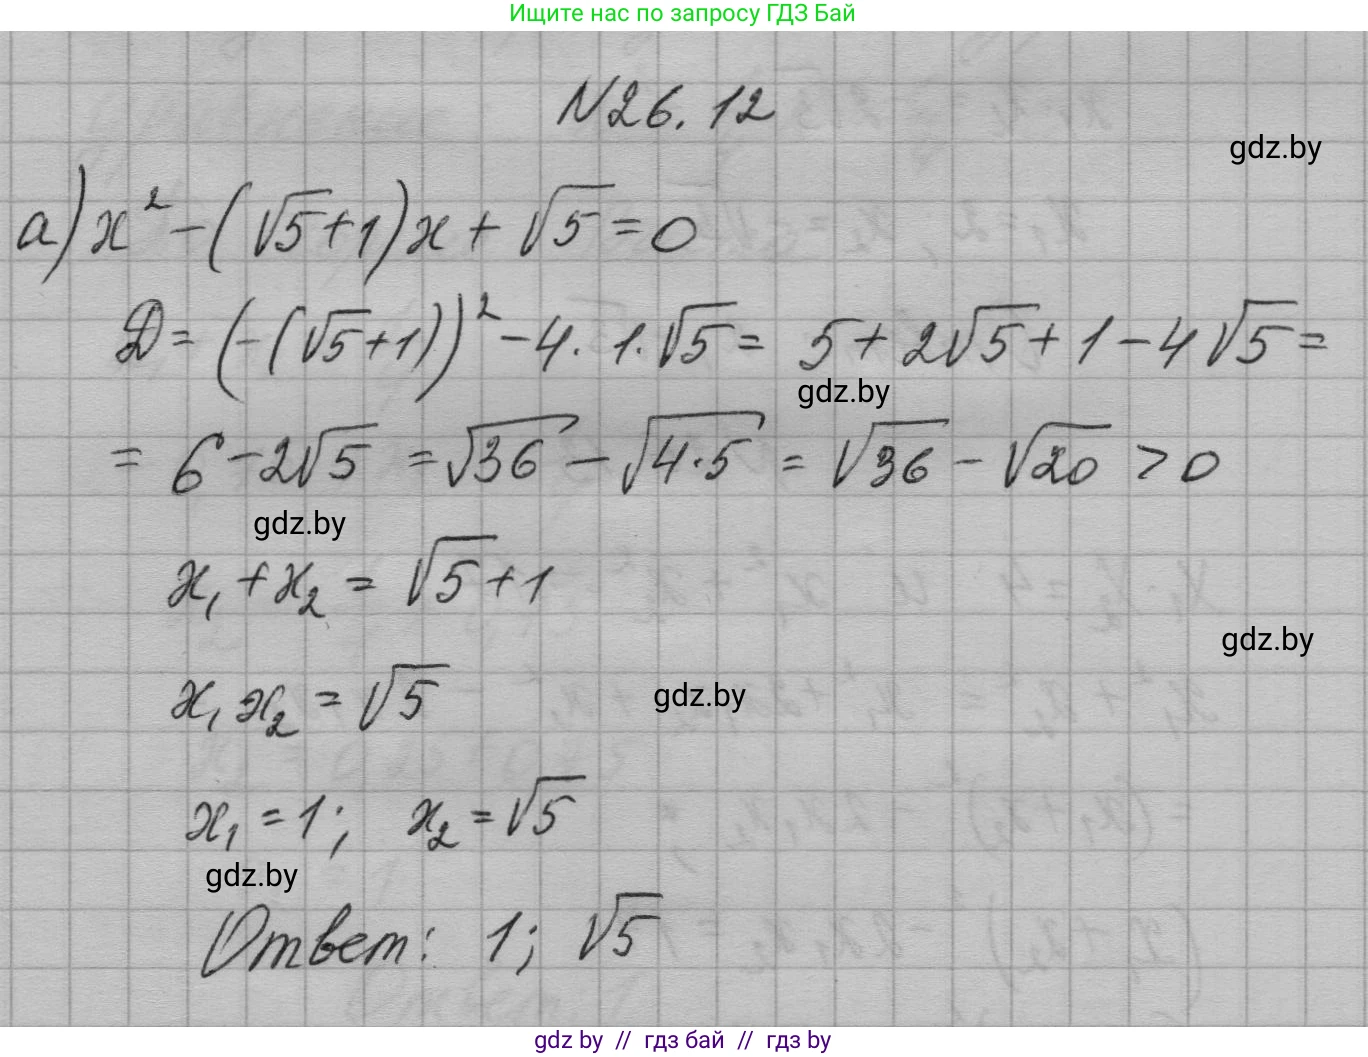 Ищите нас по запросу ГДЗ Бай
N26.12
gdz.by
а) x² - (√5+1)x + √5 = 0
D = (-(√5+1))² - 4·1·√5 = 5 + 2√5 + 1 - 4√5 =
gdz.by
= 6 - 2√5 = √36 - √4·5 = √36 - √20 > 0
gdz.by
x₁ + x₂ = √5 + 1
gdz.by
x₁x₂ = √5
gdz.by
x₁ = 1; x₂ = √5
gdz.by
Ответ: 1; √5
gdz by // гдз бай // гдз by